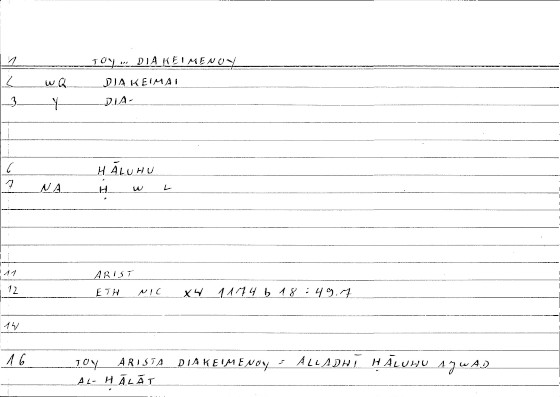 1 TOY... DIAKEIMENOY
2 WQ DIAKEIMAI
3 Y DIA-
6 ḤĀLUHU
7 NA Ḥ W L
11 ARIST
12 ETH NIC X4 1174 b 18 : 49.7
14
16 TOY ARISTA DIAKEIMENOY = ALLADHĪ ḤĀLUHU AJWAD
AL-ḤĀLĀT